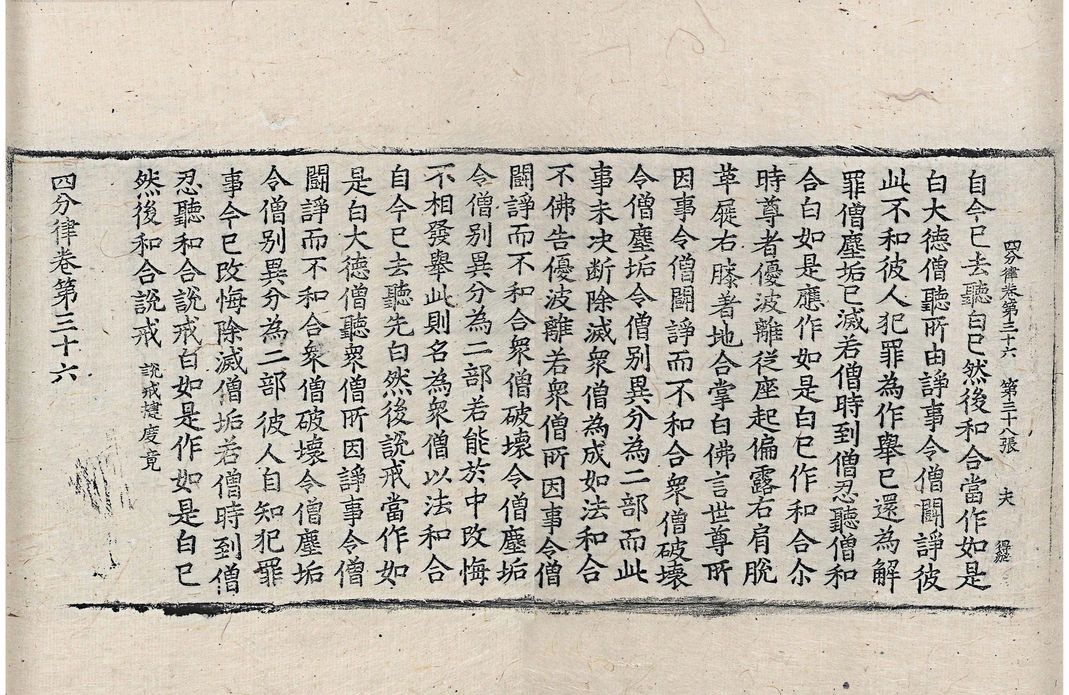 四分律卷第三十六 第三十八張 夫
自今已去聽白已然後和合當作如是
白大德僧聽所由諍事令僧鬪諍彼
此不和彼人犯罪為作舉已還為解
罪僧塵垢已滅若僧時到僧忍聽僧和
合白如是應作如是白已作和合尒
時尊者優波離從座起偏露右肩脫
革屣右膝著地合掌白佛言世尊所
因事令僧鬪諍而不和合衆僧破壞
令僧塵垢令僧別異分為二部而此
事未決斷除滅衆僧為成如法和合
不佛告優波離若衆僧所因事令僧
鬪諍而不和合衆僧破壞令僧塵垢
令僧別異分為二部若能於中改悔
不相發舉此則名為衆僧以法和合
自今已去聽先白然後說戒當作如
是白大德僧聽衆僧所因諍事令僧
鬪諍而不和合衆僧破壞令僧塵垢
令僧別異分為二部彼人自知犯罪
事今已改悔除滅僧垢若僧時到僧
忍聽和合說戒白如是作如是白已
然後和合說戒 說戒揵度竟
四分律卷第三十六